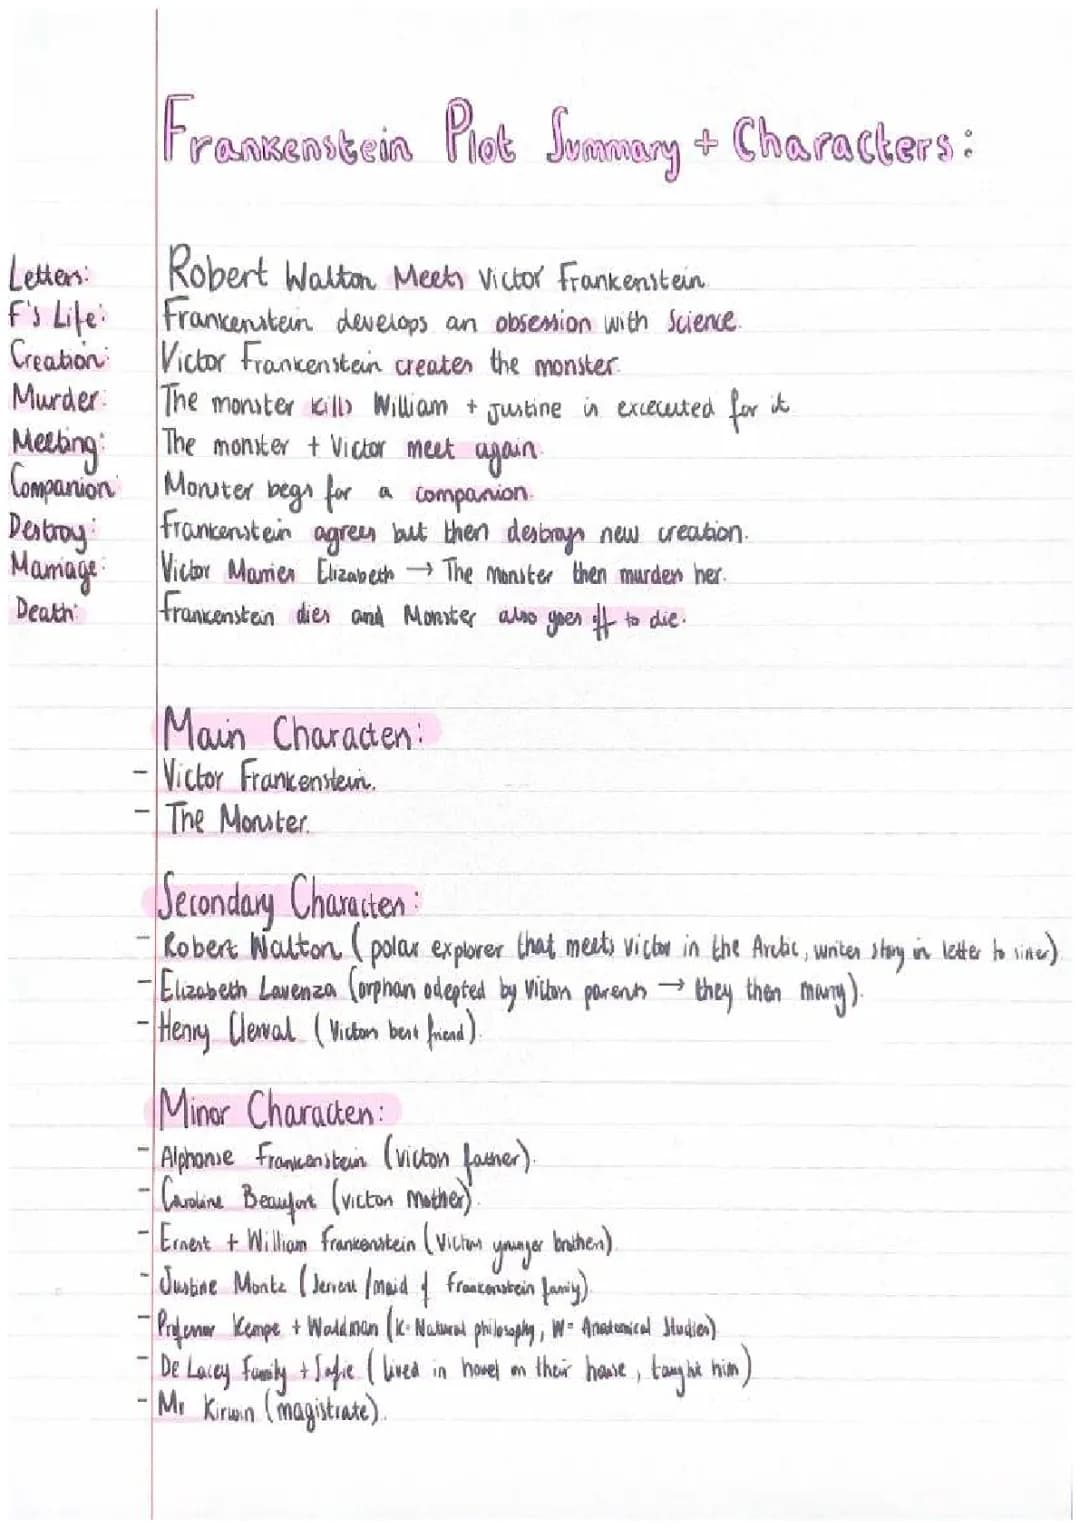 Frankenstein Plot Summary + Characters:
Letters: Robert Walton Meets Victor Frankenstein.
F's Life: Frankenstein develops an obsession with Science.
Creation: Victor Frankenstein creates the monster.
Murder: The monster kills William + Justine is excecuted for it
Meeting: The monster + Victor meet again.
Companion: Monster begs for a companion.
Destroy: Frankenstein agrees but then destroys new creation.
Marriage: Victor Marries Elizabeth → The monster then murders her.
Death: Frankenstein dies and Monster also goes off to die.
Main Characters:
- Victor Frankenstein.
- The Monster.
Secondary Characters:
- Robert Walton (polar explorer that meets victor in the Arctic, writes story in letter to sister)
- Elizabeth Lavenza (orphan adepted by Victors parents → they then marry).
- Henry Clerval (Victors best friend).
Minor Characters:
- Alphonse Frankenstein (victors father).
- Caroline Beaufort (victors mother).
- Ernest + William Frankenstein (Victors younger brothers).
- Justine Moritz (Servent/maid of Frankenstein family)
- Professor Kempe + Waldman (K= Natural philosophy, W= Anatomical Studies)
- De Lacey Family + Safie (lived in hovel on their house, taught him)
- Mr Kirwin (magistrate).